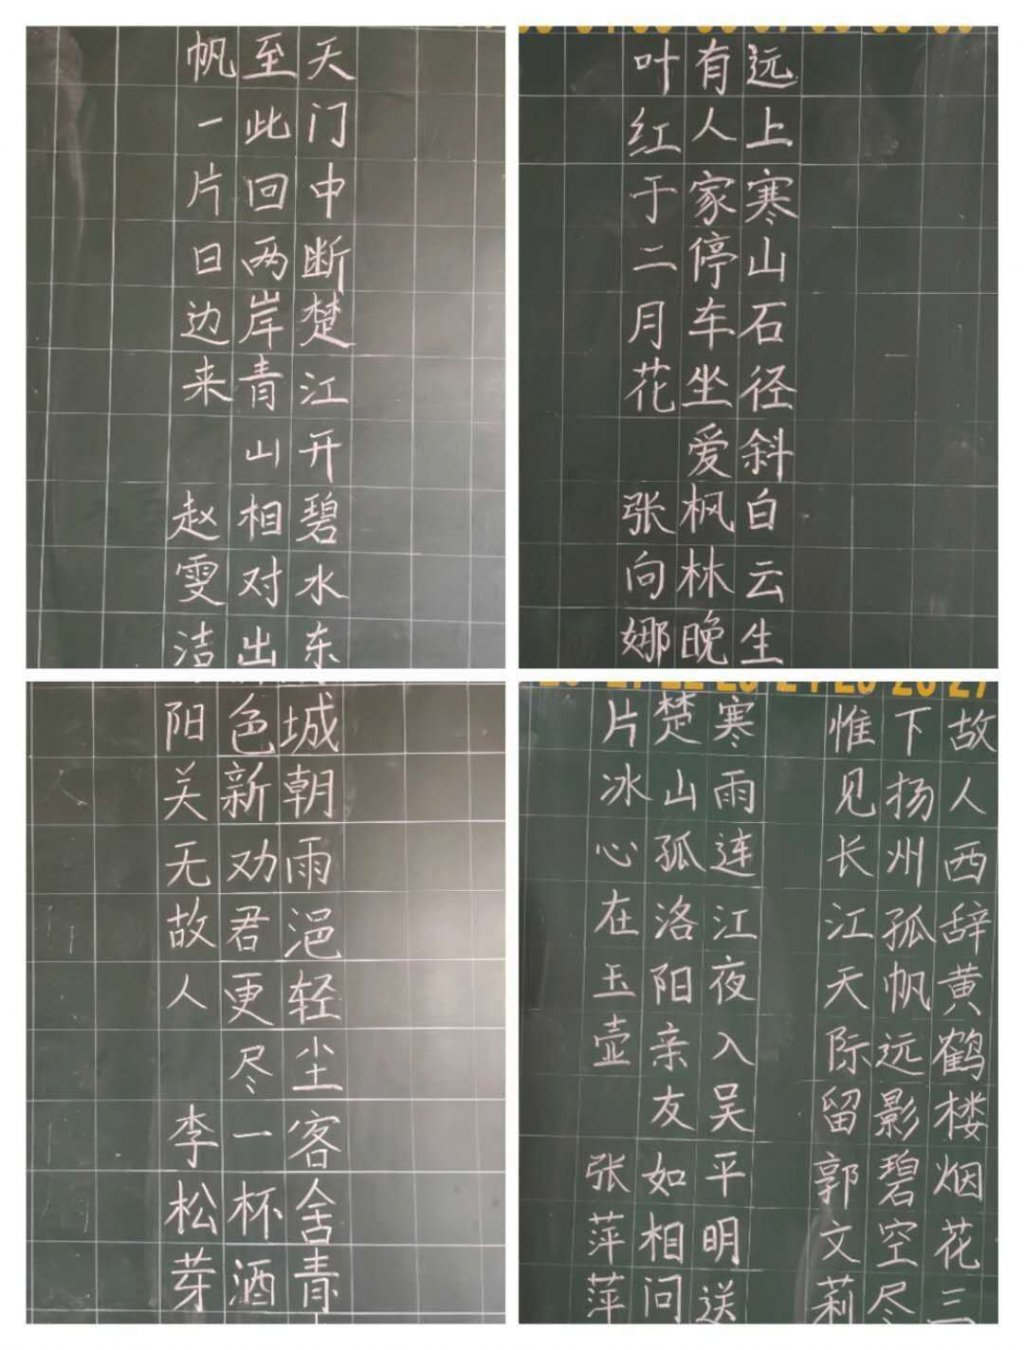 天门中断楚江开碧水东
至此回两岸青山相对出
帆一片日边来 赵雯洁
远上寒山石径斜白云生
有人家停车坐爱枫林晚
叶红于二月花 张向娜
城朝雨浥轻尘客舍青
色新劝君更尽一杯酒
阳关无故人 李松芽
故人西辞黄鹤楼烟花三
下扬州孤帆远影碧空尽
惟见长江天际留 郭文莉
寒雨连江夜入吴平明送
楚山孤洛阳亲友如相问
片冰心在玉壶 张萍萍